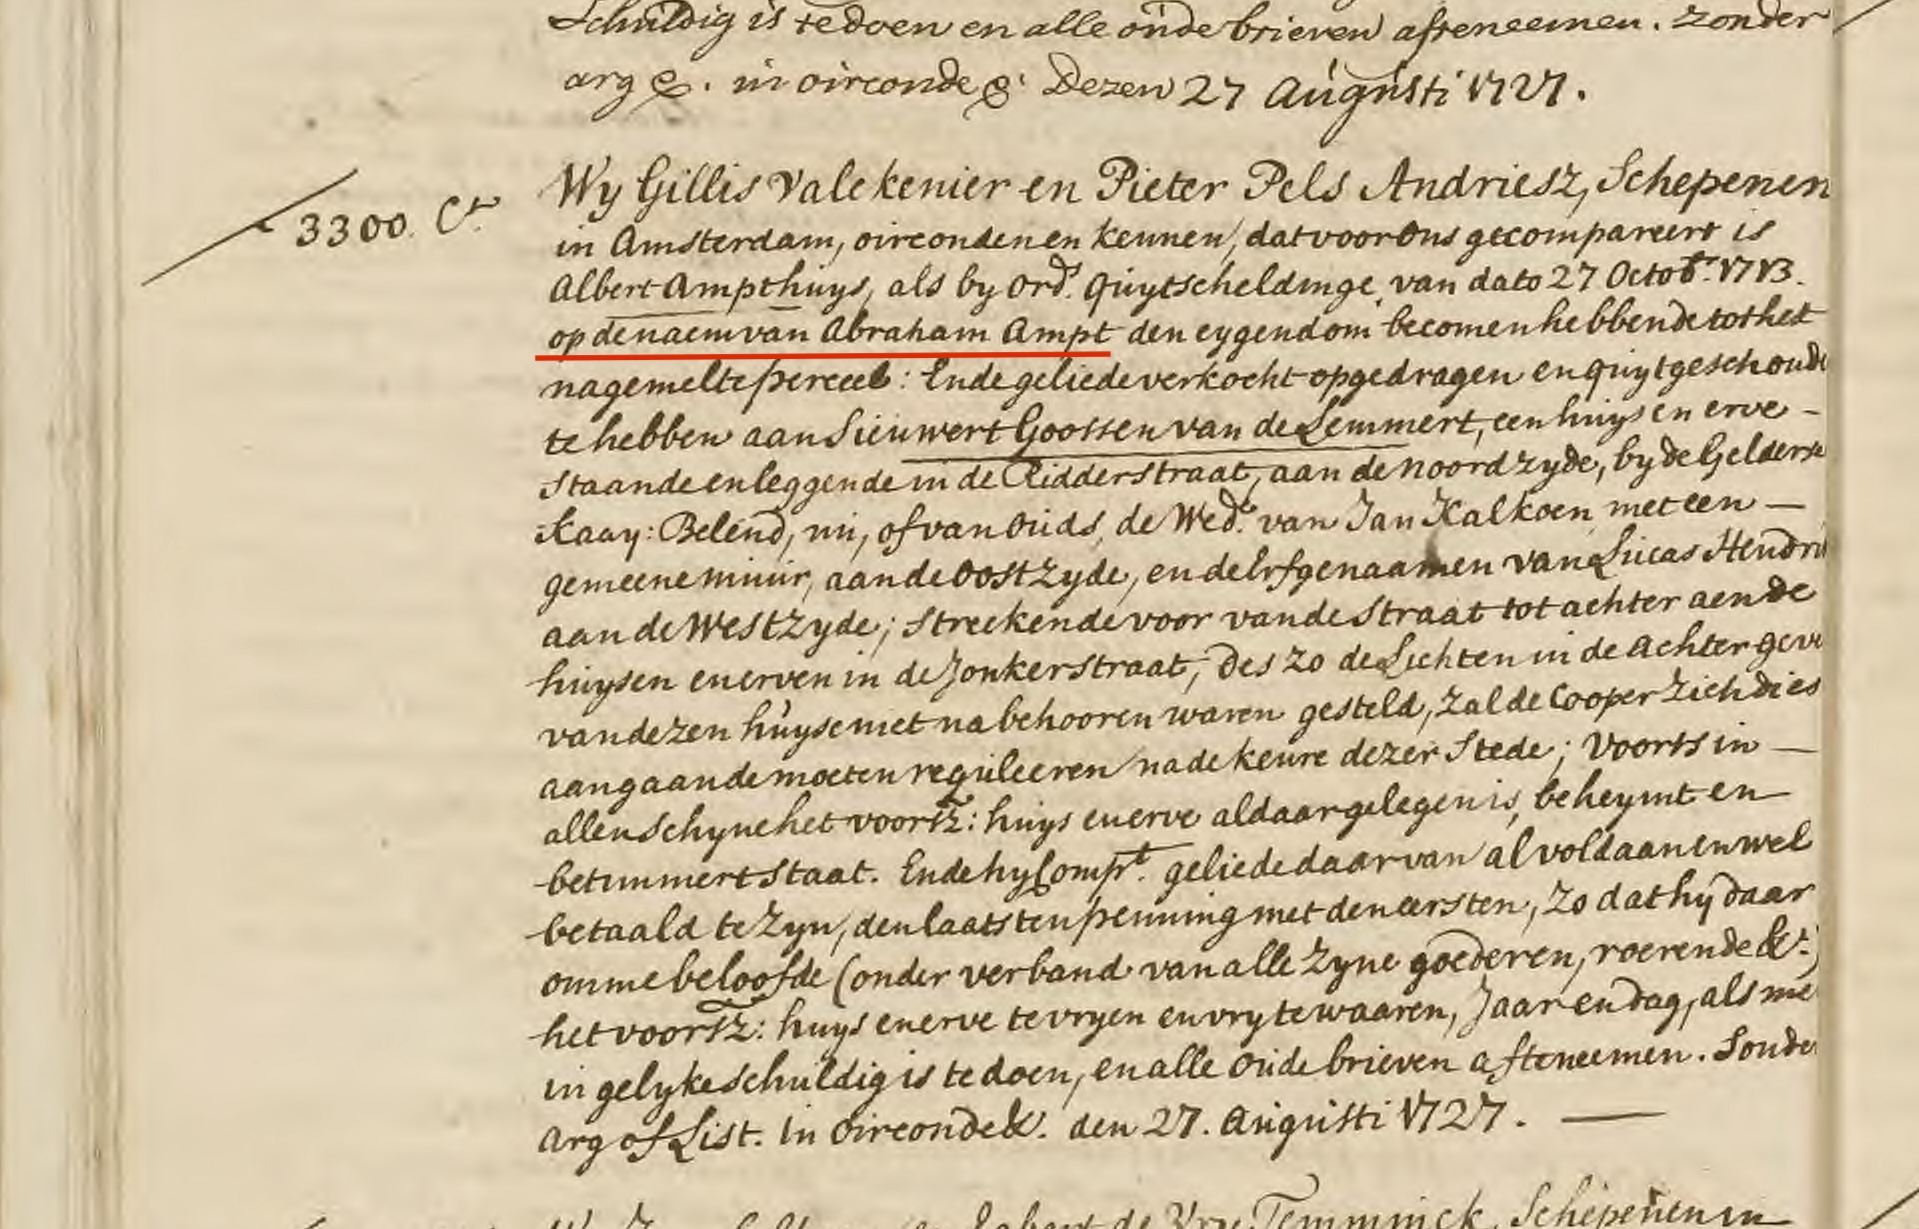 Schuldig is te doen en alle oude brieven afteneemen. zonder
arg &. in oirconde &. Dezen 27 Augusti 1727.
3300. Ct.
Wy Gillis Valckenier en Pieter Pels Andriesz, Schepenen
in Amsterdam, oirconden en kennen, dat voor Ons gecompareert is
Albert Ampthuys, als by Ord.s quytscheldinge van dato 27 Octobr. 1713.
op de naem van Abraham Ampt den eygendom becomen hebbende tot het
nagemelte perceel: Ende geliede verkocht opgedragen en quytgeschoude
te hebben aan Sieuwert Goossen van de Lemmert, een huys en erve -
staande en leggende in de Ridderstraat, aan de noordzyde, by de Gelderse
Kaay: Belend, nu, of van Ouds, de Wed.e van Jan Kalkoen met een —
gemeene muur, aan de Oostzyde, en de Erfgenaamen van Lucas Hendri
aan de Westzyde; streckende voor van de Straat tot achter aen de
huysen en erven in de Jonkerstraat, des zo de Lichten in de Achter geve
van dezen huyse niet na behooren waren gesteld, zal de Cooper zich dies
aangaande moeten reguleeren na de keure dezer Stede; Voorts in —
allen Schyne het voorsz: huys en erve aldaar gelegen is, beheymt en —
betimmert Staat. Ende hy Compt. geliede daar van al voldaan en wel
betaald te Zyn, den laatsten penning met den eersten, zo dat hy daar
omme beloofde (onder verband van alle Zyne goederen, roerende &c.)
het voorsz: huys en erve te vryen en vry te waaren, Jaar en dag, als me
in gelyke schuldig is te doen, en alle Oude brieven afteneemen. Sonde
Arg of List. In Oirconde &. den 27. Augusti 1727. —
Schepenen in